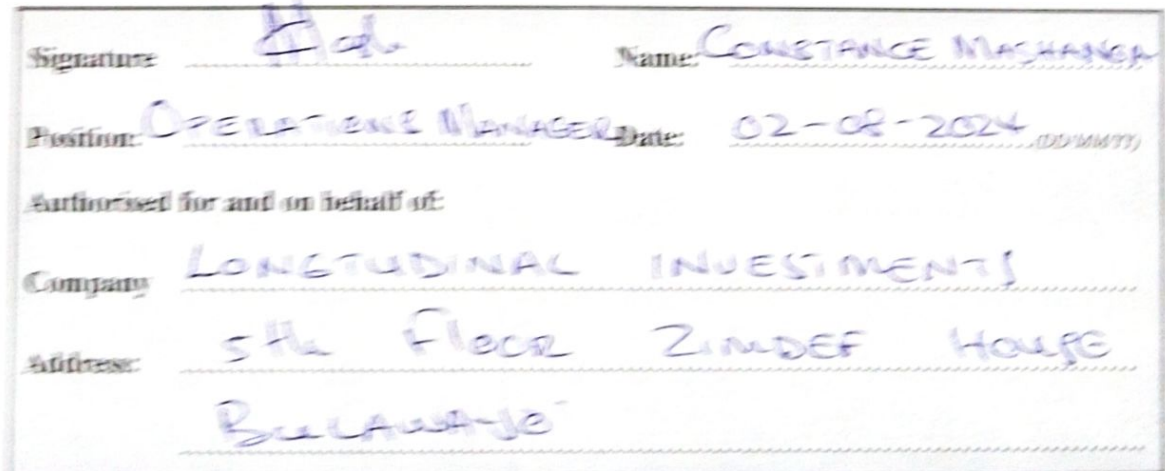 Signature Name: CONSTANCE MASHANGA
Position: OPERATIONS MANAGER Date: 02-08-2024 (DD/MM/YY)
Authorised for and on behalf of:
Company LONGTUDINAL INVESTMENTS
Address: 5th Floor ZIMDEF HOUSE
BULAWAYO